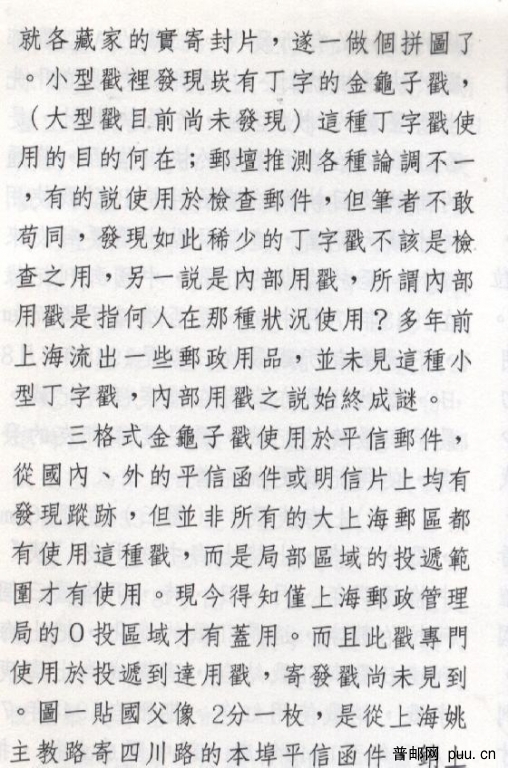 就各藏家的實寄封片，遂一做個拼圖了
。小型戳裡發現崁有丁字的金龜子戳，
（大型戳目前尚未發現）這種丁字戳使
用的目的何在；郵壇推測各種論調不一
，有的說使用於檢查郵件，但筆者不敢
苟同，發現如此稀少的丁字戳不該是檢
查之用，另一說是內部用戳，所謂內部
用戳是指何人在那種狀況使用？多年前
上海流出一些郵政用品，並未見這種小
型丁字戳，內部用戳之說始終成謎。
三格式金龜子戳使用於平信郵件，
從國內、外的平信函件或明信片上均有
發現蹤跡，但並非所有的大上海郵區都
有使用這種戳，而是局部區域的投遞範
圍才有使用。現今得知僅上海郵政管理
局的O投區域才有蓋用。而且此戳專門
使用於投遞到達用戳，寄發戳尚未見到
。圖一貼國父像 2分一枚，是從上海姚
主教路寄四川路的本埠平信函件
普邮网 puu.cn